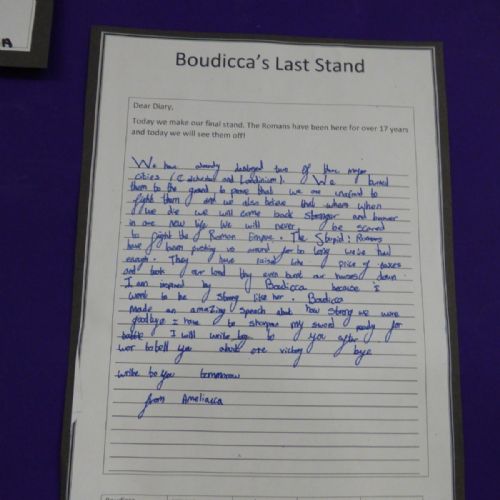 A
Boudicca's Last Stand
Dear Diary,
Today we make our final stand. The Romans have been here for over 17 years
and today we will see them off!
We have already destroyed two of there major
cities (Colchester and Londinium). We burned
them to the ground to prove that we are unafraid to
fight them and we also belive that when when
we die we will come back stronger and braver
in are new life. We will never be scared
to fight the Roman Empire. The Stupid Romans
have been pushing us around for to long we've had
enough. They have raise the price of taxes
and took our land they even burnt our houses down
I am inspired by Boudicca because i
want to be strong like her. Boudicca
made an amazing speech about how strong we were
goodbye I have to sharpen my sword ready for
battle I will write to you after
war to tell you about are victory bye
write to you tommorow
from Ameliacca